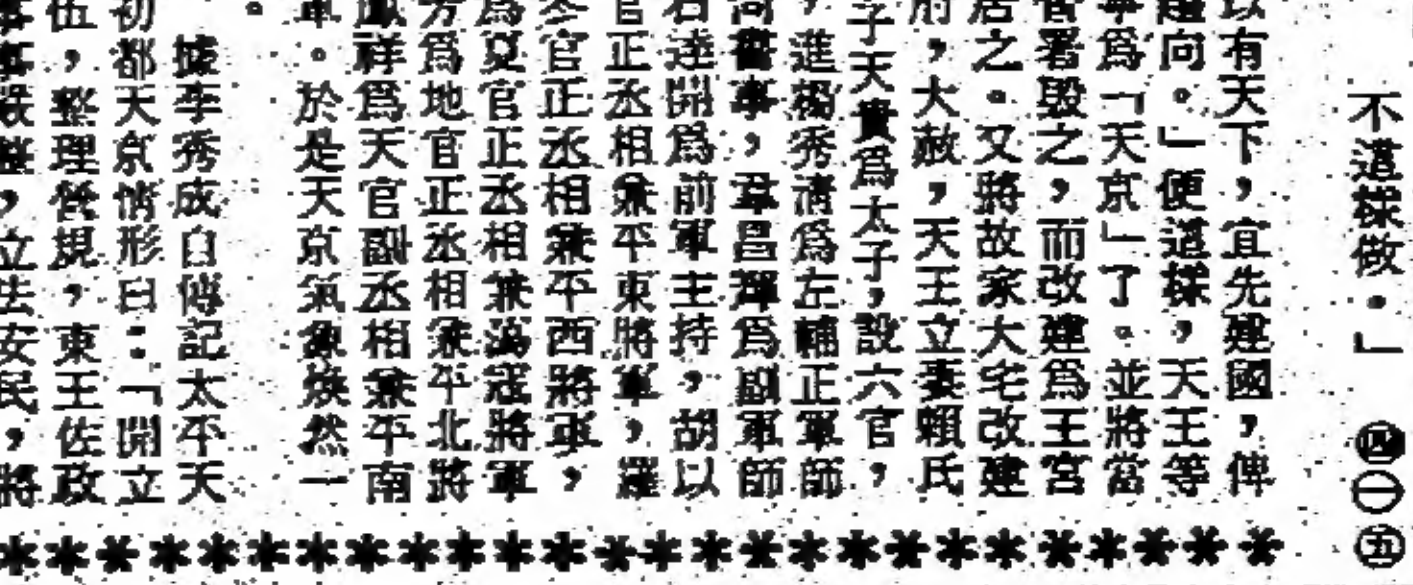 不這樣做。」 ㊃㊀㊄
以有天下,宜先建國,俾
趨向。」便這樣,天王等
寧爲「天京」了。並將當
督署毀之,而改建爲王宮
居之。又將故家大宅改建
府,大赦,天王立妻賴氏
子天貴爲太子,設六官,
,進楊秀清爲左輔正軍師
尚書事,韋昌輝爲副軍師
石達開爲前軍主持,胡以
官正丞相兼平東將軍,羅
冬官正丞相兼平西將軍,
爲夏官正丞相兼蕩寇將軍
芳爲地官正丞相兼平北將
鳳祥爲天官副丞相兼平南
軍。於是天京氣象煥然一
。
據李秀成自傳記太平天
初都天京情形曰:「開立
伍,整理營規,東王佐政
整,立法安民,將